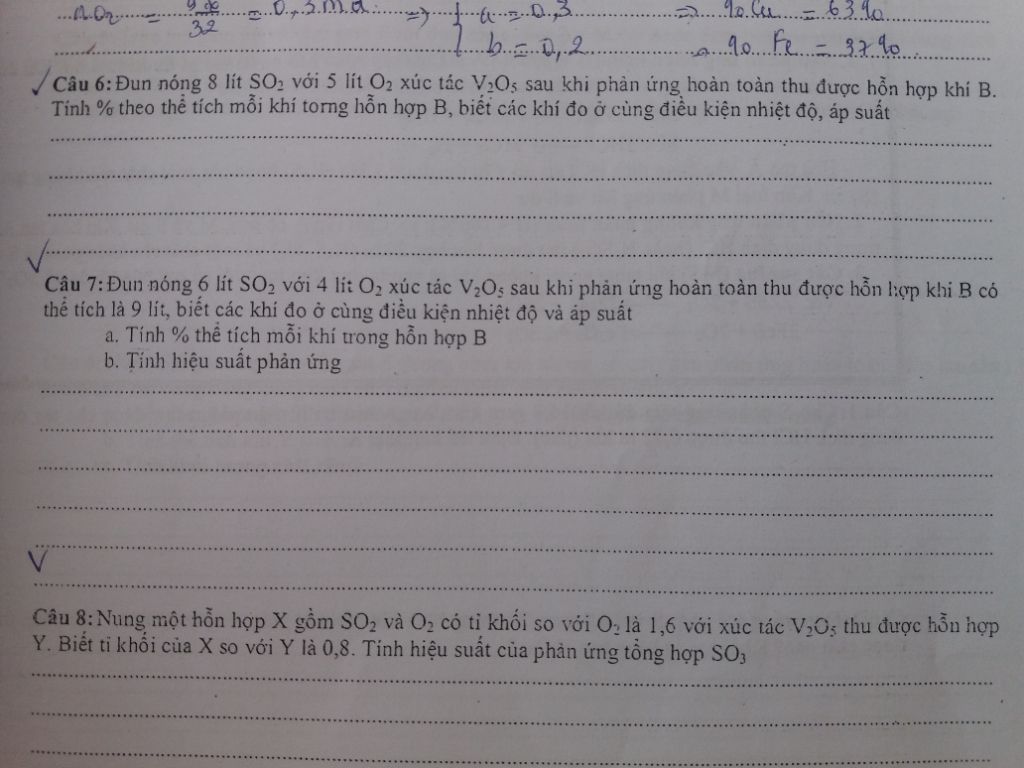 nO₂ = 9,6/32 = 0,3 mol => { a = 0,3 => % Cu = 63%
b = 0,2 % Fe = 37%
Câu 6: Đun nóng 8 lít SO₂ với 5 lít O₂ xúc tác V₂O₅ sau khi phản ứng hoàn toàn thu được hỗn hợp khí B.
Tính % theo thể tích mỗi khí torng hỗn hợp B, biết các khí đo ở cùng điều kiện nhiệt độ, áp suất
Câu 7: Đun nóng 6 lít SO₂ với 4 lít O₂ xúc tác V₂O₅ sau khi phản ứng hoàn toàn thu được hỗn hợp khi B có
thể tích là 9 lít, biết các khí đo ở cùng điều kiện nhiệt độ và áp suất
a. Tính % thể tích mỗi khí trong hỗn hợp B
b. Tính hiệu suất phản ứng
Câu 8: Nung một hỗn hợp X gồm SO₂ và O₂ có tỉ khối so với O₂ là 1,6 với xúc tác V₂O₅ thu được hỗn hợp
Y. Biết tỉ khối của X so với Y là 0,8. Tính hiệu suất của phản ứng tổng hợp SO₃